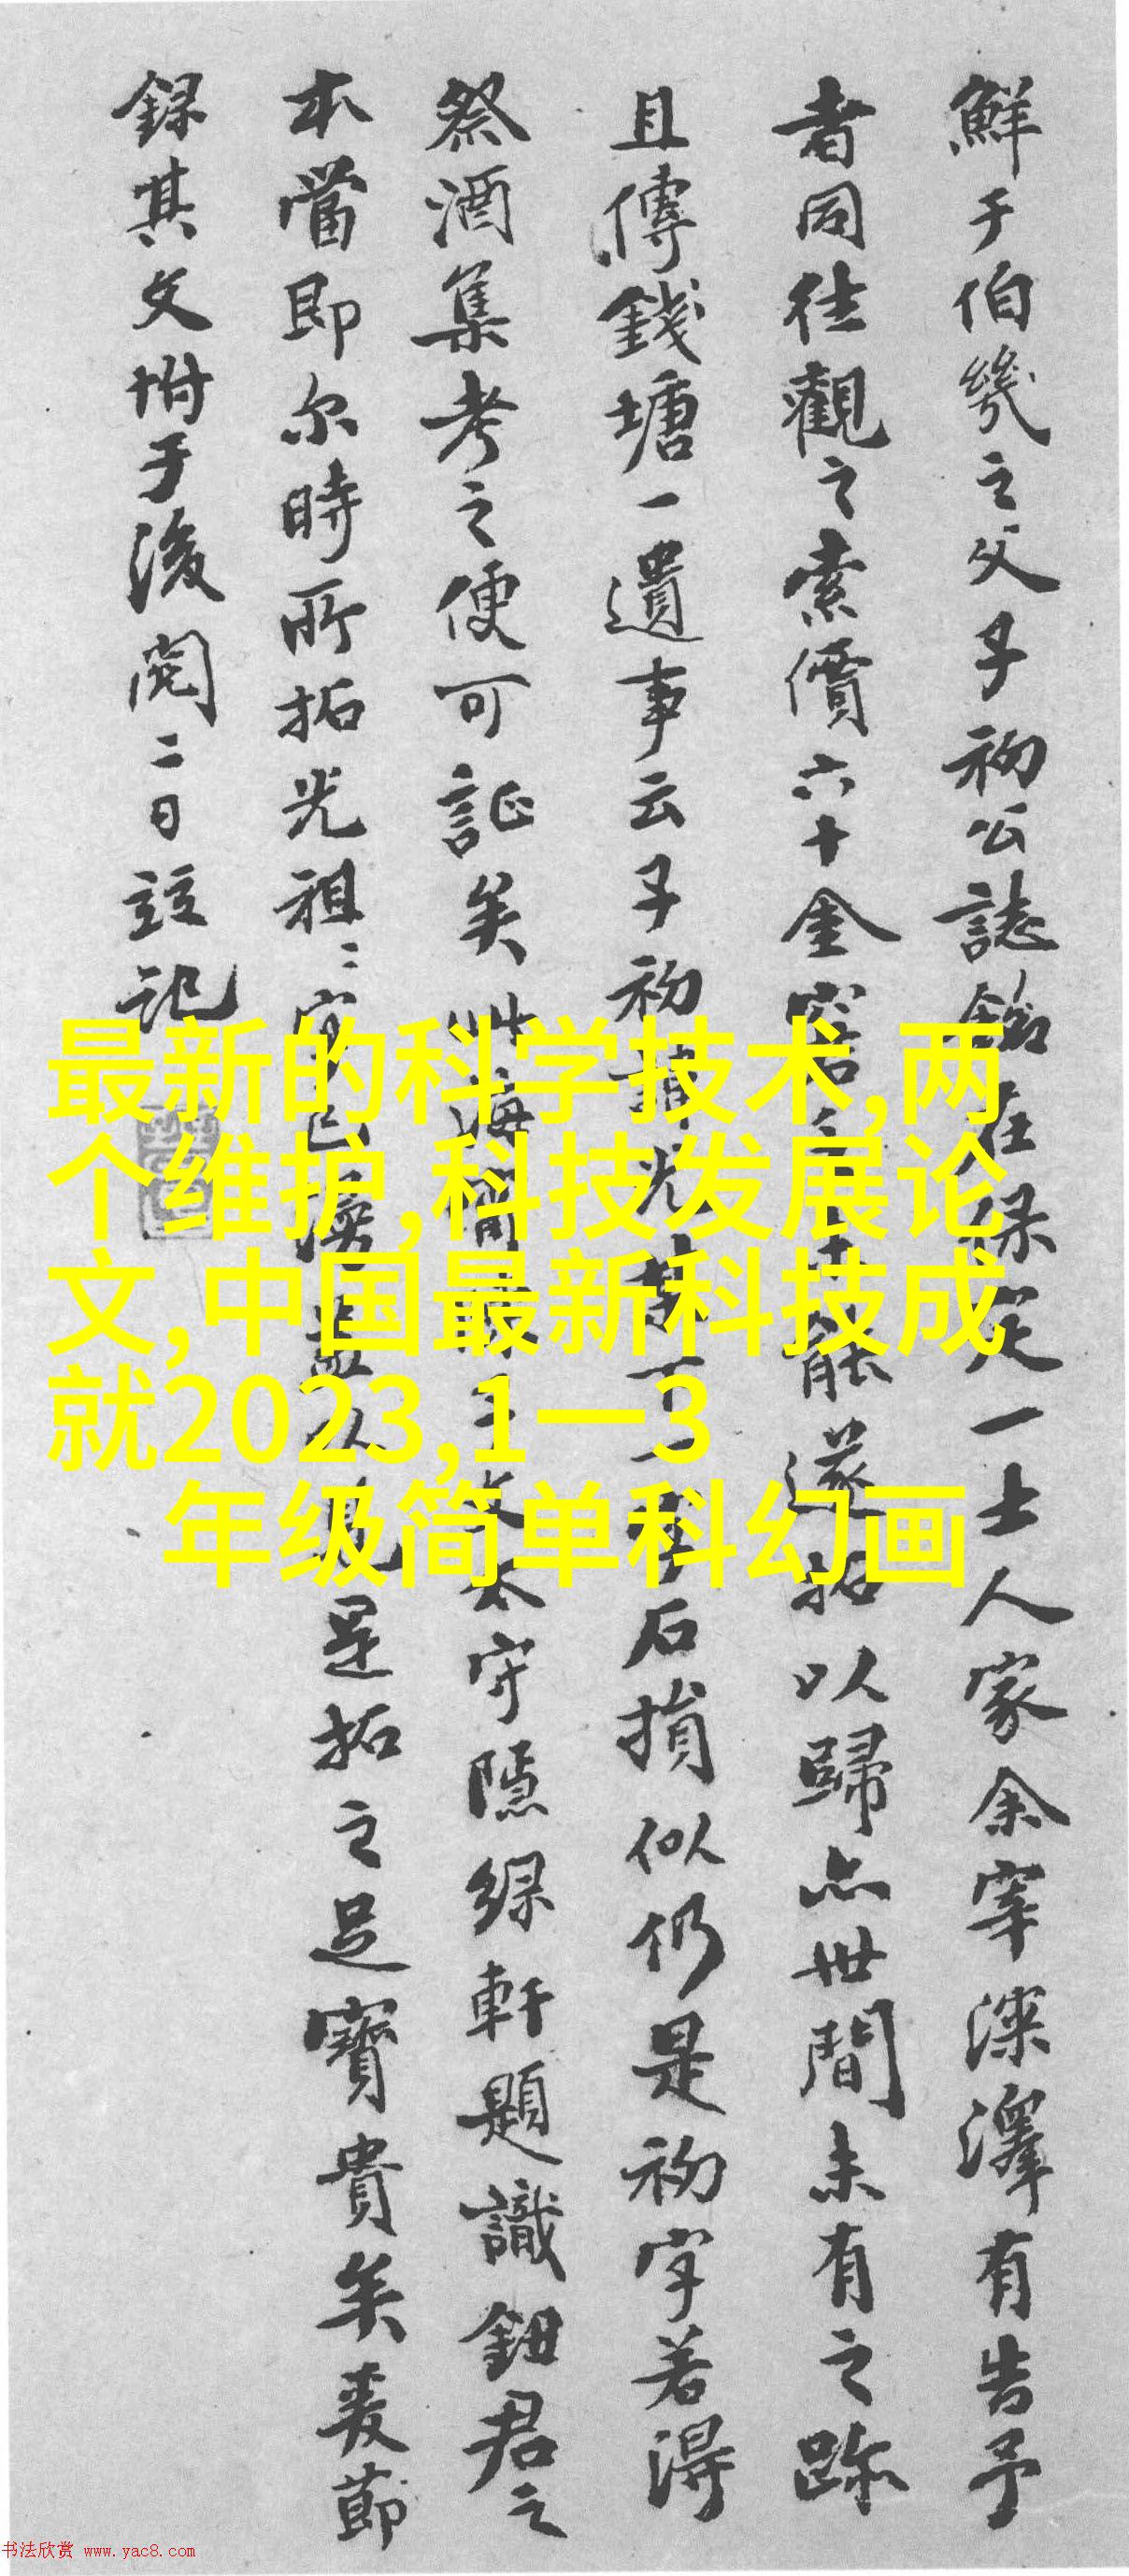 鮮于伯幾之父子初公誌銘在保定一士人家余宰深澤有告予
者同往觀之索價六十金 能遂拓以歸亦世間未有之跡
且傳錢塘一遺事云子初 石損似仍是初字若得
祭酒集考之便可証矣 太守隱綠軒題識鈕君之
本當即尔時所拓光祖二字 是拓之足寶貴矣爰節
錄其文坿于後閏二日竝記
最新的科学技术,两
个维护,科技发展论
文,中国最新科技成
就2023,1一3
年级简单科幻画
书法欣赏 www.yac8.com